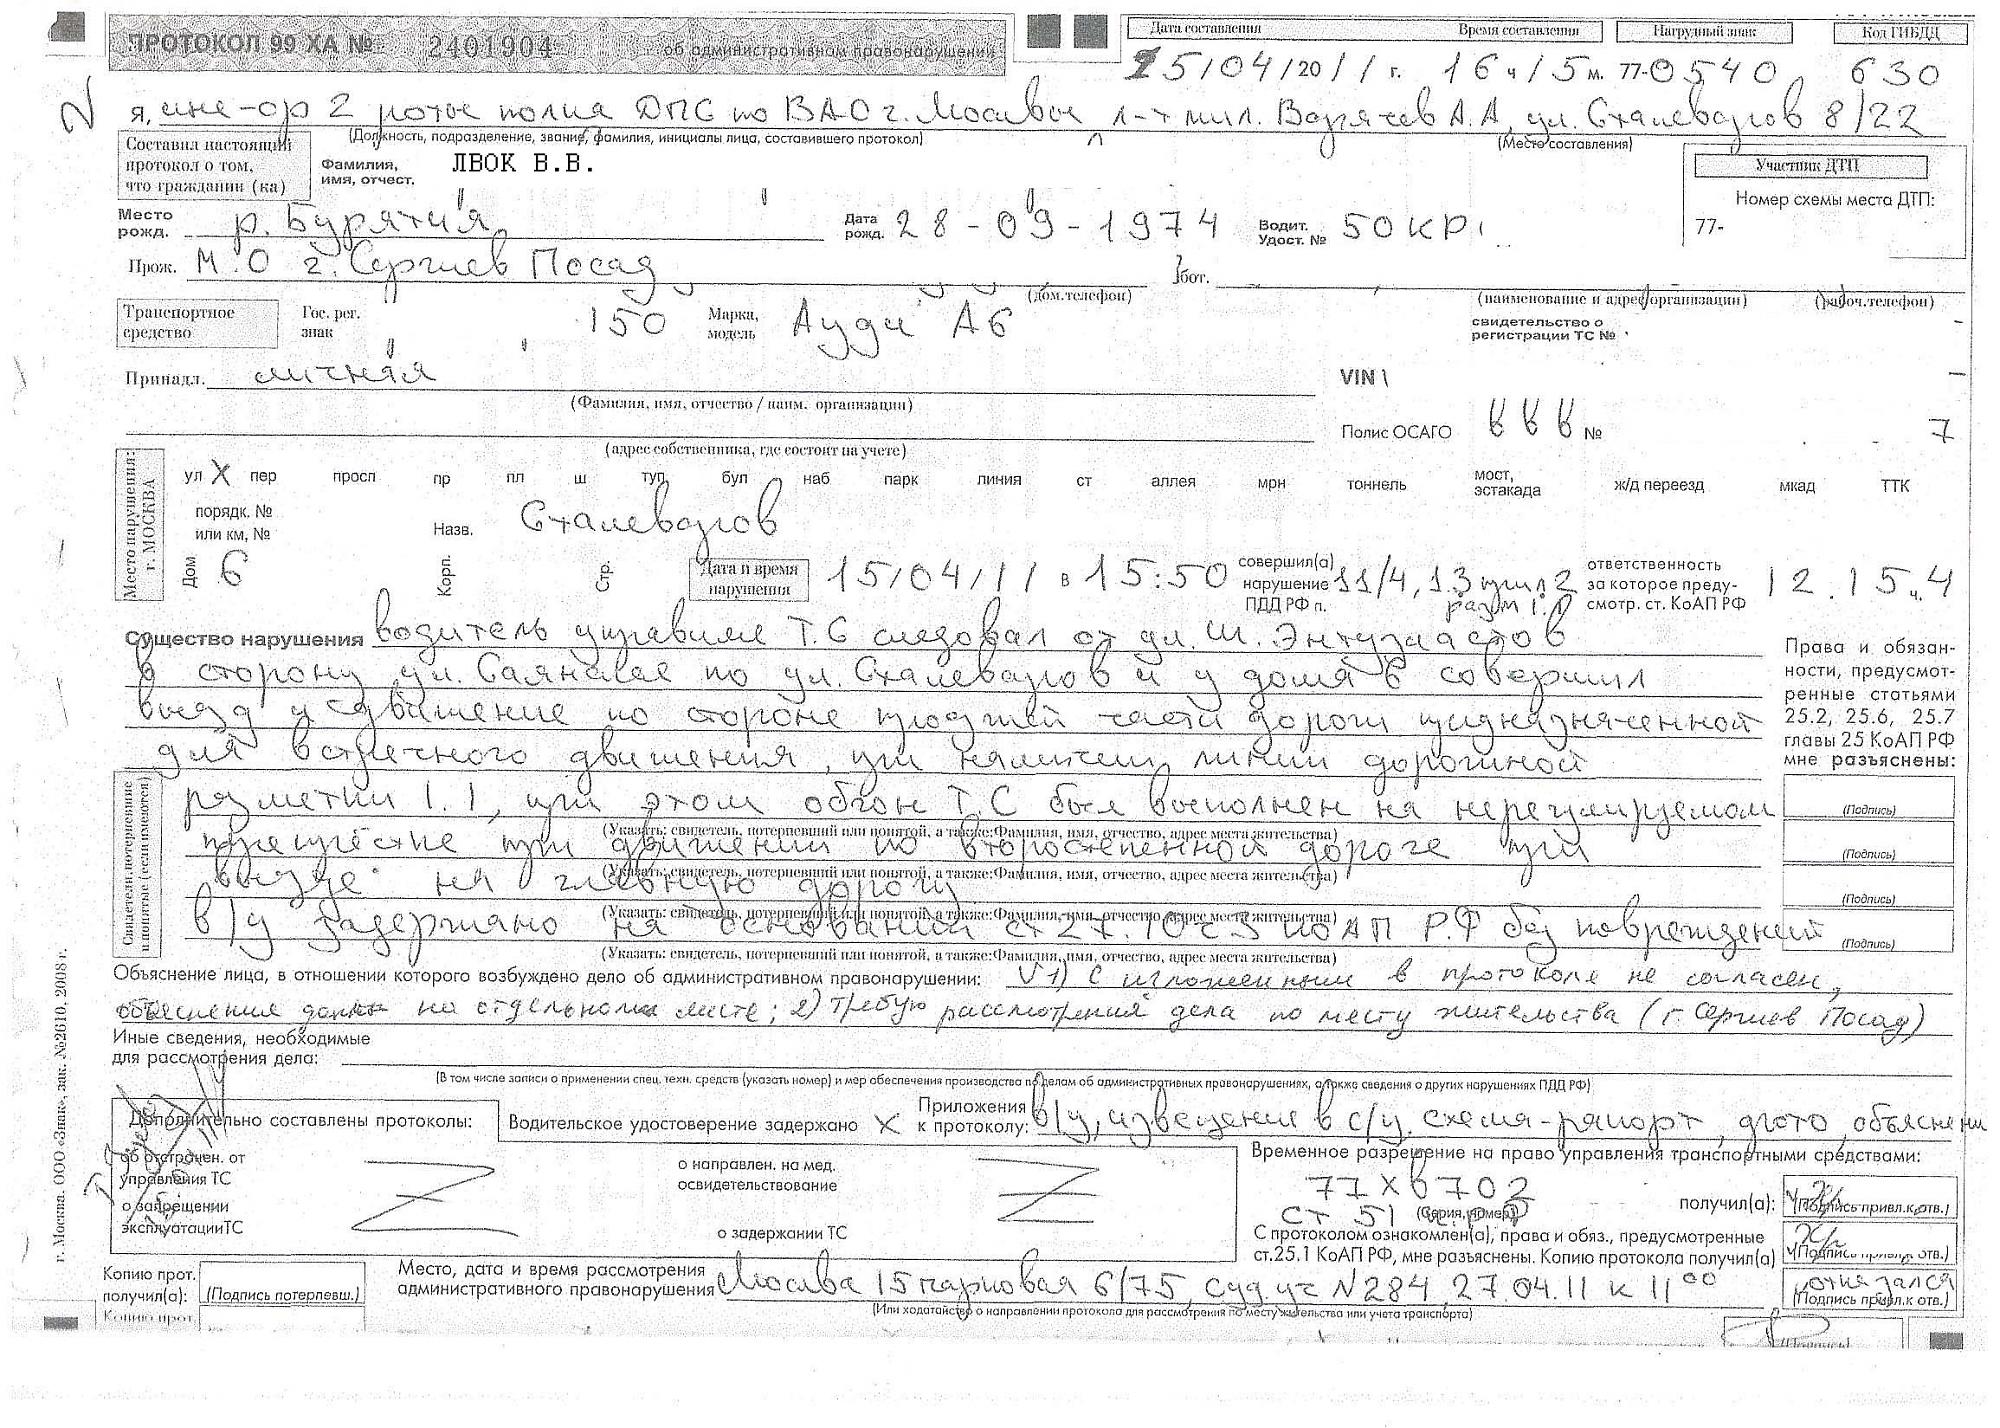 ПРОТОКОЛ 99 ХА № 2401904 об административном правонарушении
Дата составления Время составления Нагрудный знак Код ГИБДД
15/04/2011 г. 16 ч 15 м. 77-0540 630
Я, инс-ор 2 роты полка ДПС по ВАО г. Москвы л-т мил. А.А, ул. Сталеваров 8/22
(Должность, подразделение, звание, фамилия, инициалы лица, составившего протокол) (Место составления)
Составил настоящий протокол о том, что гражданин (ка)
Фамилия, имя, отчест. ЛВОК В.В.
Участник ДТП
Номер схемы места ДТП:
77-
Место рожд. р. Бурятия Дата рожд. 28-09-1974 Водит. Удост. № 50КР
Прож. М.О г. Сергиев Посад бот.
(дом.телефон) (наименование и адрес организации) (рабоч.телефон)
Транспортное средство Гос. рег. знак 150 Марка, модель Ауди А6 свидетельство о регистрации ТС №
Принадл. личная VIN
(Фамилия, имя, отчество / наим. организации)
Полис ОСАГО ВВВ № 7
(адрес собственника, где состоит на учете)
Место нарушения: г. МОСКВА
ул X пер просп пр пл ш туп бул наб парк линия ст аллея мрн тоннель мост, эстакада ж/д переезд мкад ТТК
порядк. № или км, № Назв. Сталеваров
Дом 6 Корп. Стр. Дата и время нарушения 15/04/11 в 15:50 совершил(а) нарушение ПДД РФ п. 11/4, 1.3 прил 2 разм 1.1 ответственность за которое предусмотр. ст. КоАП РФ 12.15 ч.4
Существо нарушения водитель управляя Т.С следовал от ул. Ш. Энтузиастов
в сторону ул. Саянская по ул. Сталеваров и у дома 6 совершил
выезд и движение по стороне проезжей части дороги предназначенной
для встречного движения, при наличии линии дорожной
разметки 1.1, при этом обгон Т.С был выполнен на нерегулируемом
перекрёстке при движении по второстепенной дороге при
выезде на главную дорогу
в/у задержано на основании ст 27.10 ч 3 КоАП Р.Ф без повреждений
Права и обязанности, предусмотренные статьями 25.2, 25.6, 25.7 главы 25 КоАП РФ мне разъяснены:
(Подпись)
(Подпись)
(Подпись)
(Подпись)
Свидетели, потерпевшие и понятые (если имеются)
(Указать: свидетель, потерпевший или понятой, а также: Фамилия, имя, отчество, адрес места жительства)
(Указать: свидетель, потерпевший или понятой, а также: Фамилия, имя, отчество, адрес места жительства)
(Указать: свидетель, потерпевший или понятой, а также: Фамилия, имя, отчество, адрес места жительства)
(Указать: свидетель, потерпевший или понятой, а также: Фамилия, имя, отчество, адрес места жительства)
Объяснение лица, в отношении которого возбуждено дело об административном правонарушении: V 1) С изложенным в протоколе не согласен,
объяснения на отдельном листе; 2) Требую рассмотрения дела по месту жительства (г. Сергиев Посад)
Иные сведения, необходимые для рассмотрения дела:
(В том числе записи о применении спец. техн. средств (указать номер) и мер обеспечения производства по делам об административных правонарушениях, а также сведения о других нарушениях ПДД РФ)
Дополнительно составлены протоколы: Водительское удостоверение задержано X Приложения к протоколу: в/у, извещение в с/у. схема-рапорт, фото, объяснени
об отстранен. от управления ТС о направлен. на мед. освидетельствование
о запрещении эксплуатации ТС о задержании ТС
Временное разрешение на право управления транспортными средствами:
77 ХВ 702 получил(а):
(Серия, номер) (Подпись привл.к отв.)
ст 51 к.рф
С протоколом ознакомлен(а), права и обяз., предусмотренные ст.25.1 КоАП РФ, мне разъяснены. Копию протокола получил(а)
Копию прот. получил(а): (Подпись потерпевш.) Место, дата и время рассмотрения административного правонарушения Москва 15 парковая 6/75, суд. уч N284, 27.04.11 к 11 00 отказался
(Подпись привл.к отв.)
(Или ходатайство о направлении протокола для рассмотрения по месту жительства или учета транспорта)
Копию прот.
г. Москва. ООО «Знак», зак. №2610, 2008 г.